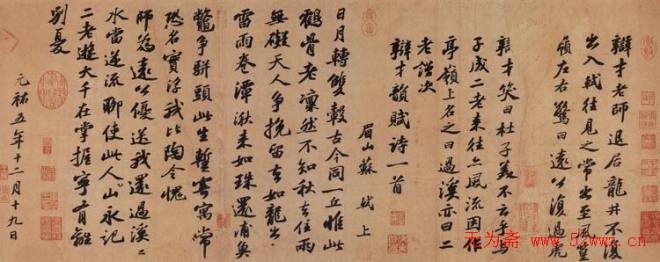 辯才老師退居龍井不復
出入軾往見之常出至風篁
嶺左右驚曰遠公復過虎
辯才笑曰杜子美不云乎與
子成二老來往亦風流因作
亭嶺上名之曰過溪亦曰二
老謹次
辯才韻賦詩一首
眉山蘇軾上
日月轉雙轂古今同一丘惟此
鶴骨老凜然不知秋去住兩
無礙天人爭挽留去如龍出
雷雨卷潭湫來如珠還浦魚
鱉爭駢頭此生暫寄寓常
恐名實浮我比陶令愧
師為遠公優送我還過溪溪
水當逆流聊使此人山永記
二老遊大千在掌握寧有離
別憂
元祐五年十二月十九日
无为斋 www.52wwz.cn